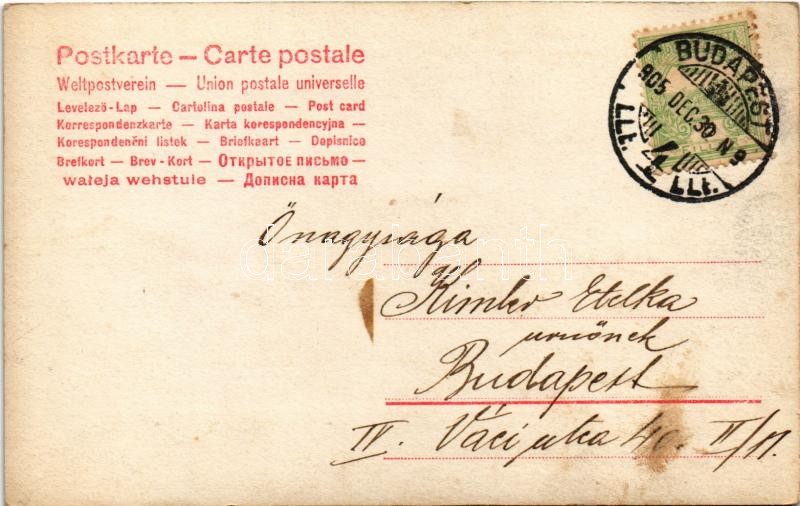 Postkarte — Carte postale
Weltpostverein — Union postale universelle
Levelezö-Lap — Cartolina postale — Post card
Korrespondenzkarte — Karta korespondencyjna —
Korespondenčni listek — Briefkaart — Dopisnice
Brefkort — Brev-Kort — Открытое письмо —
wateja wehstule — Дописна карта
BUDAPEST
905 DEC.30 N9
Önagysága
Etelka
urnőnek
Budapest
IV. Váci utca 40. II/11.
darabanth